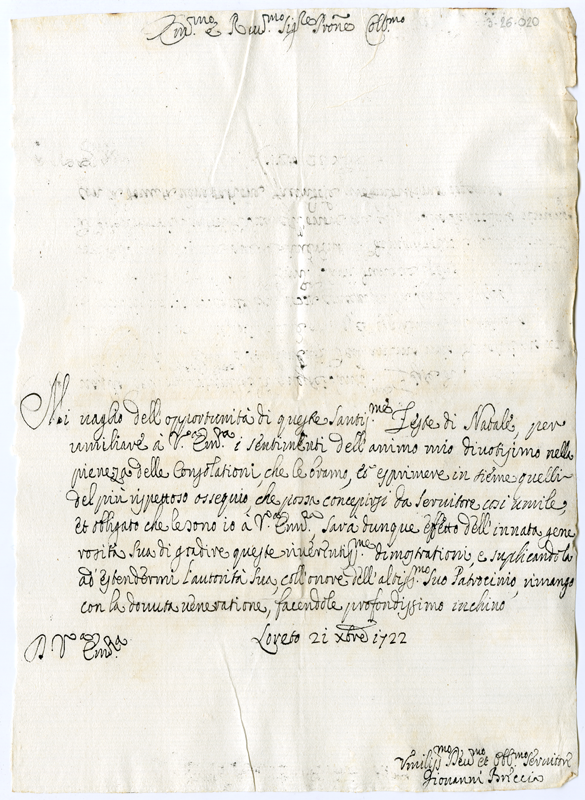 Em.mo e Rev.mo Sig.re Pron̄e Coll.mo
3-26-020
Mi uaglio dell'opportunità di queste Santis.me Feste di Natale, per
umiliare à V.a Em.za i sentimenti dell'animo mio diuotissimo nella
pienezza delle Consolationi, che le bramo, et esprimere in sieme quelli
del più rispettoso ossequio, che possa concepirsi da Seruitore così umile,
et obligato che le sono io à V.a Em.za Sarà dunque effetto dell'innata gene
rosità Sua di gradire queste riuerentis.me dimostrationi, e suplicandola
ad'estendermi l'autorità Sua, coll'onore dell'altis.mo Suo Patrocinio, rimango
con la douuta ueneratione, facendole profondissimo inchino
Loreto 21 Xbre 1722
D V.a Em.za
Vmilis.mo Deu.mo et Obl.mo Seruitore
Giovanni Breccia